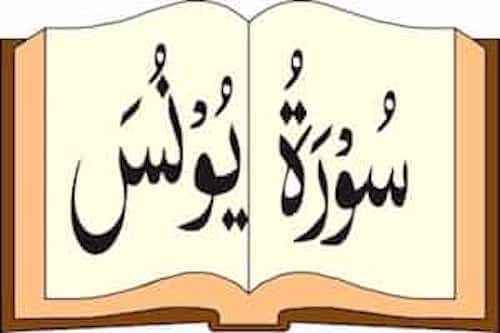 سُوْرَةُ يُوْنُسَ